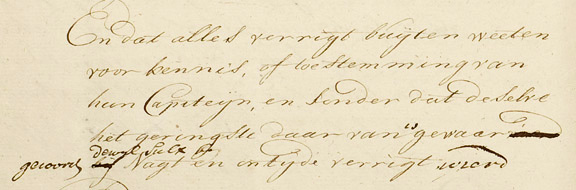 En dat alles verrigt buijten weeten
voor kennis, of toestemming van
hun Capiteijn, en sonder dat deselve
het geringste daar van is gewaar
geword, dewyl sulx by Nagt en ontyde verrigt word